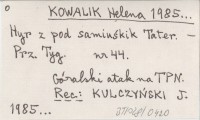 0
KOWALIK Helena 1985...
Hyr z pod samiuśkik Tater. –
Prz. Tyg. nr 44.
Góralski atak na TPN.
Rec: KULCZYŃSKI J.
1985...
0420